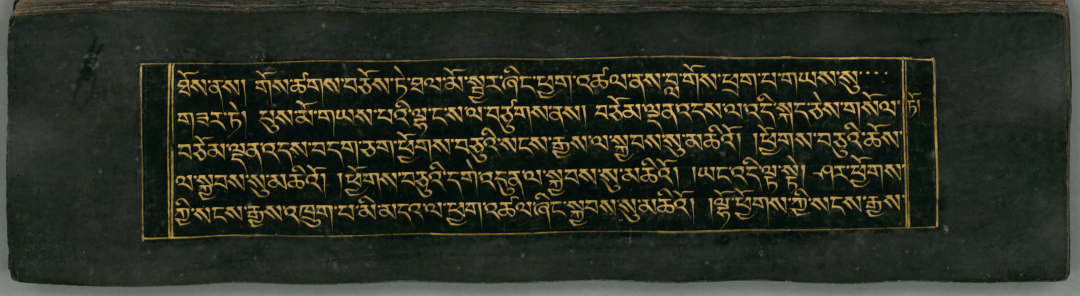 ཐོས་ནས། གོས་ཚགས་བཅོས་ཏེ་ཐལ་མོ་སྦྱར་ཞིང་ཕྱག་འཚལ་ནས་བླ་གོས་ཕྲག་པ་གཡས་སུ་་་་
གཟར་ཏེ། པུས་མོ་གཡས་པའི་ལྷ་ང་ས་ལ་བཙུགས་ནས། བཅོམ་ལྡན་འདས་ལ་འདི་སྐད་ཅེས་གསོལ་ཏོ།
བཅོམ་ལྡན་འདས་བདག་ཅག་ཕྱོགས་བཅུའི་སངས་རྒྱས་ལ་སྐྱབས་སུ་མཆིའོ། །ཕྱོགས་བཅུའི་ཆོས་
ལ་སྐྱབས་སུ་མཆིའོ། །ཕྱོགས་བཅུའི་དགེ་འདུན་ལ་སྐྱབས་སུ་མཆིའོ། །ཡང་འདི་ལྟ་སྟེ། ཤར་ཕྱོགས་
ཀྱི་སངས་རྒྱས་འཁྲུག་པ་མི་མངའ་ལ་ཕྱག་འཚལ་ཞིང་སྐྱབས་སུ་མཆིའོ། །ལྷོ་ཕྱོགས་ཀྱི་སངས་རྒྱས་